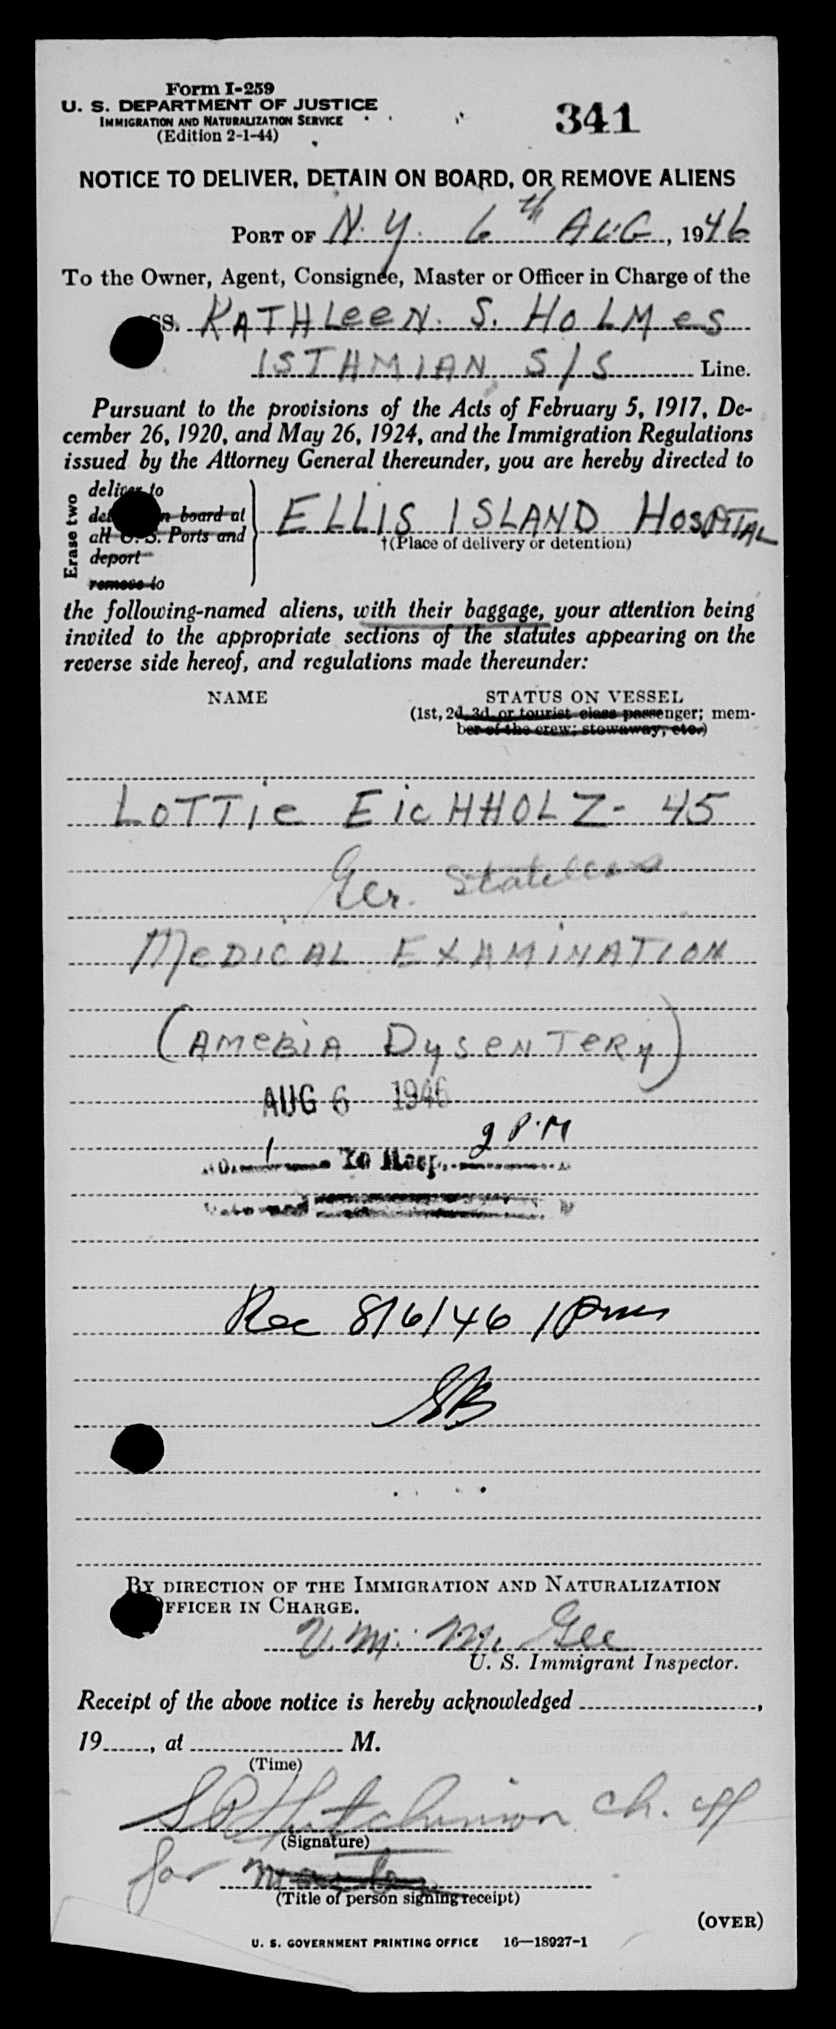 Form I-259
U. S. DEPARTMENT OF JUSTICE
IMMIGRATION AND NATURALIZATION SERVICE
(Edition 2-1-44)
341
NOTICE TO DELIVER, DETAIN ON BOARD, OR REMOVE ALIENS
PORT OF N.Y. 6th AUG, 1946
To the Owner, Agent, Consignée, Master or Officer in Charge of the
SS. KATHLeeN. S. HOLMes
ISTHMIAN S/S Line.
Pursuant to the provisions of the Acts of February 5, 1917, De-
cember 26, 1920, and May 26, 1924, and the Immigration Regulations
issued by the Attorney General thereunder, you are hereby directed to
Erase two
deliver to
board at
all U. S. Ports and
deport
remove to
ELLIS ISLAND HOSPITAL
†(Place of delivery or detention)
the following-named aliens, with their baggage, your attention being
invited to the appropriate sections of the statutes appearing on the
reverse side hereof, and regulations made thereunder:
NAME
STATUS ON VESSEL
(1st, 2d, 3d, or tourist class passenger; mem-
ber of the crew; stowaway, etc.)
LOTTie EicHHOLZ - 45
Ger. Stateless
MeDICAL EXAMINATION
(AMeBIA DySeNTeRy)
AUG 6 1946
1 To Hosp. 2 P.M
Rec 8/6/46 1 pm
SB
BY DIRECTION OF THE IMMIGRATION AND NATURALIZATION
OFFICER IN CHARGE.
V. M. Mc Gee
U. S. Immigrant Inspector.
Receipt of the above notice is hereby acknowledged ,
19 , at M.
(Time)
Hutchinson ch. off
(Signature)
for master
(Title of person signing receipt)
(OVER)
U. S. GOVERNMENT PRINTING OFFICE 16—18927-1